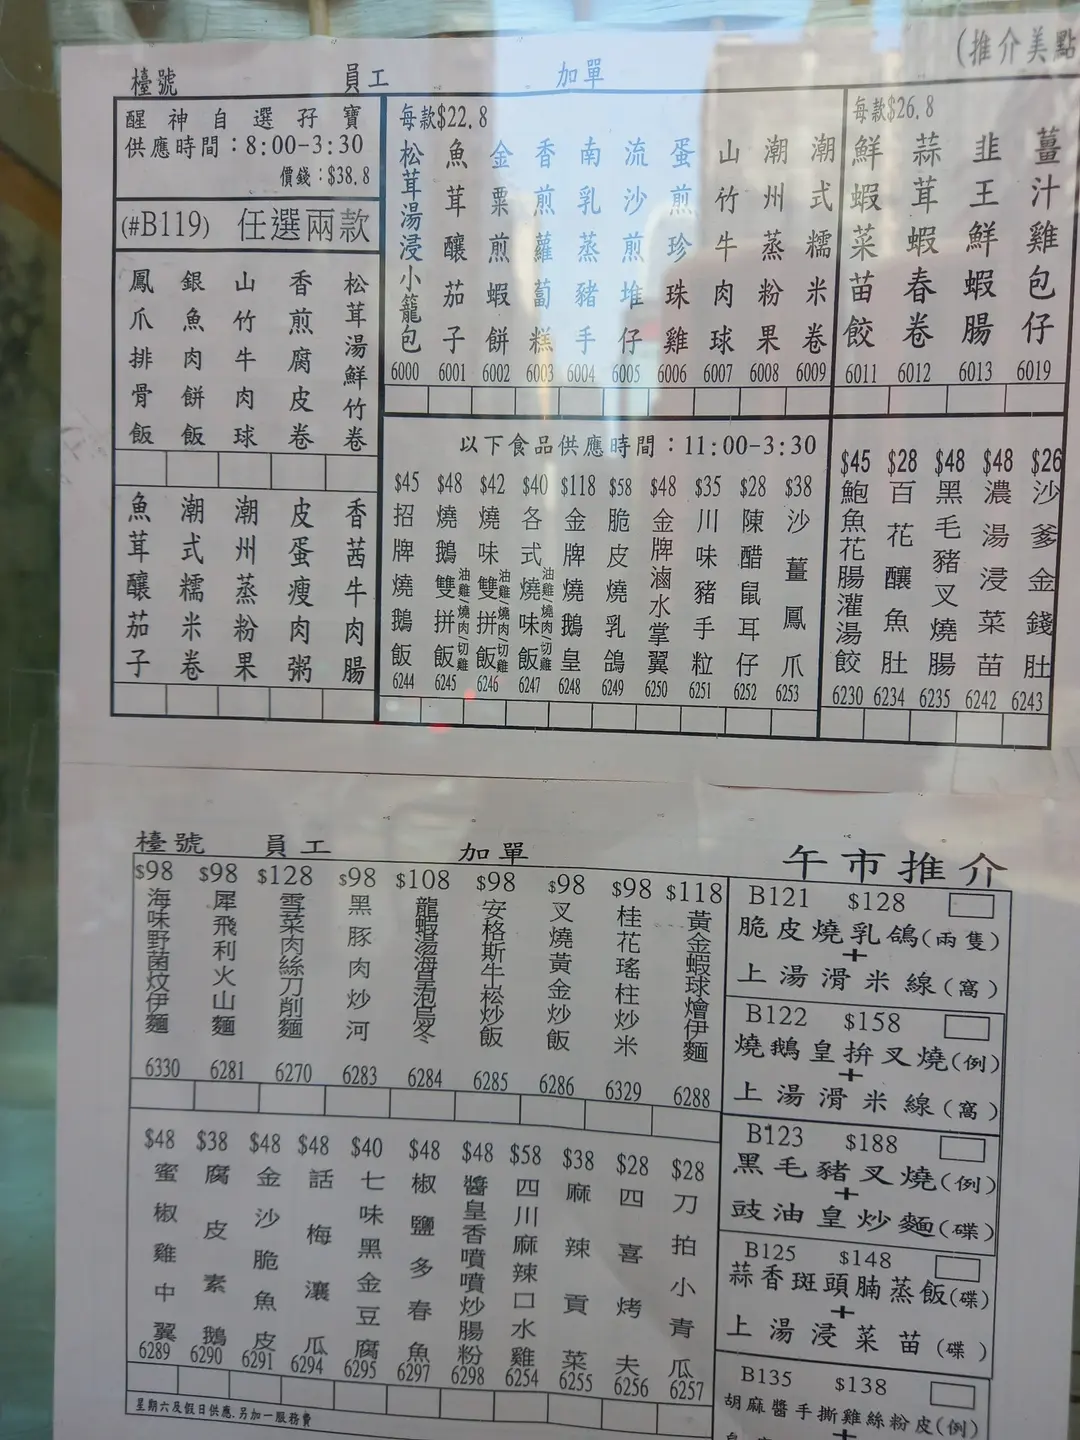 (推介美點
檯號 員工 加單
醒神自選孖寶
供應時間：8:00-3:30
價錢：$38.8
(#B119) 任選兩款
鳳爪排骨飯
銀魚肉餅飯
山竹牛肉球
香煎腐皮卷
松茸湯鮮竹卷
魚茸釀茄子
潮式糯米卷
潮州蒸粉果
皮蛋瘦肉粥
香茜牛肉腸
每款$22.8
松茸湯浸小籠包 6000
魚茸釀茄子 6001
金粟煎蝦餅 6002
香煎蘿蔔糕 6003
南乳蒸豬手 6004
流沙煎堆仔 6005
蛋煎珍珠雞 6006
山竹牛肉球 6007
潮州蒸粉果 6008
潮式糯米卷 6009
每款$26.8
鮮蝦菜苗餃 6011
蒜茸蝦春卷 6012
韭王鮮蝦腸 6013
薑汁雞包仔 6019
以下食品供應時間：11:00-3:30
$45 招牌燒鵝飯 6244
$48 燒鵝雙拼飯 油雞/燒肉/切雞 6245
$42 燒味雙拼飯 油雞/燒肉/切雞 6246
$40 各式燒味飯 油雞/燒肉/切雞 6247
$118 金牌燒鵝皇 6248
$58 脆皮燒乳鴿 6249
$48 金牌滷水掌翼 6250
$35 川味豬手粒 6251
$28 陳醋鼠耳仔 6252
$38 沙薑鳳爪 6253
$45 鮑魚花腸灌湯餃 6230
$28 百花釀魚肚 6234
$48 黑毛豬叉燒腸 6235
$48 濃湯浸菜苗 6242
$26 沙爹金錢肚 6243
檯號 員工 加單
$98 海味野菌炆伊麵 6330
$98 犀飛利火山麵 6281
$128 雪菜肉絲刀削麵 6270
$98 黑豚肉炒河 6283
$108 龍蝦湯海皇泡烏冬 6284
$98 安格斯牛崧炒飯 6285
$98 叉燒黃金炒飯 6286
$98 桂花瑤柱炒米 6329
$118 黃金蝦球燴伊麵 6288
$48 蜜椒雞中翼 6289
$38 腐皮素鵝 6290
$48 金沙脆魚皮 6291
$48 話梅瀼瓜 6294
$40 七味黑金豆腐 6295
$48 椒鹽多春魚 6297
$48 醬皇香噴噴炒腸粉 6298
$58 四川麻辣口水雞 6254
$38 麻辣貢菜 6255
$28 四喜烤夫 6256
$28 刀拍小青瓜 6257
星期六及假日供應.另加一服務費
午市推介
B121 $128
脆皮燒乳鴿(兩隻)
+
上湯滑米線(窩)
B122 $158
燒鵝皇拼叉燒(例)
+
上湯滑米線(窩)
B123 $188
黑毛豬叉燒(例)
+
豉油皇炒麵(碟)
B125 $148
蒜香斑頭腩蒸飯(碟)
+
上湯浸菜苗(碟)
B135 $138
胡麻醬手撕雞絲粉皮(例)
+